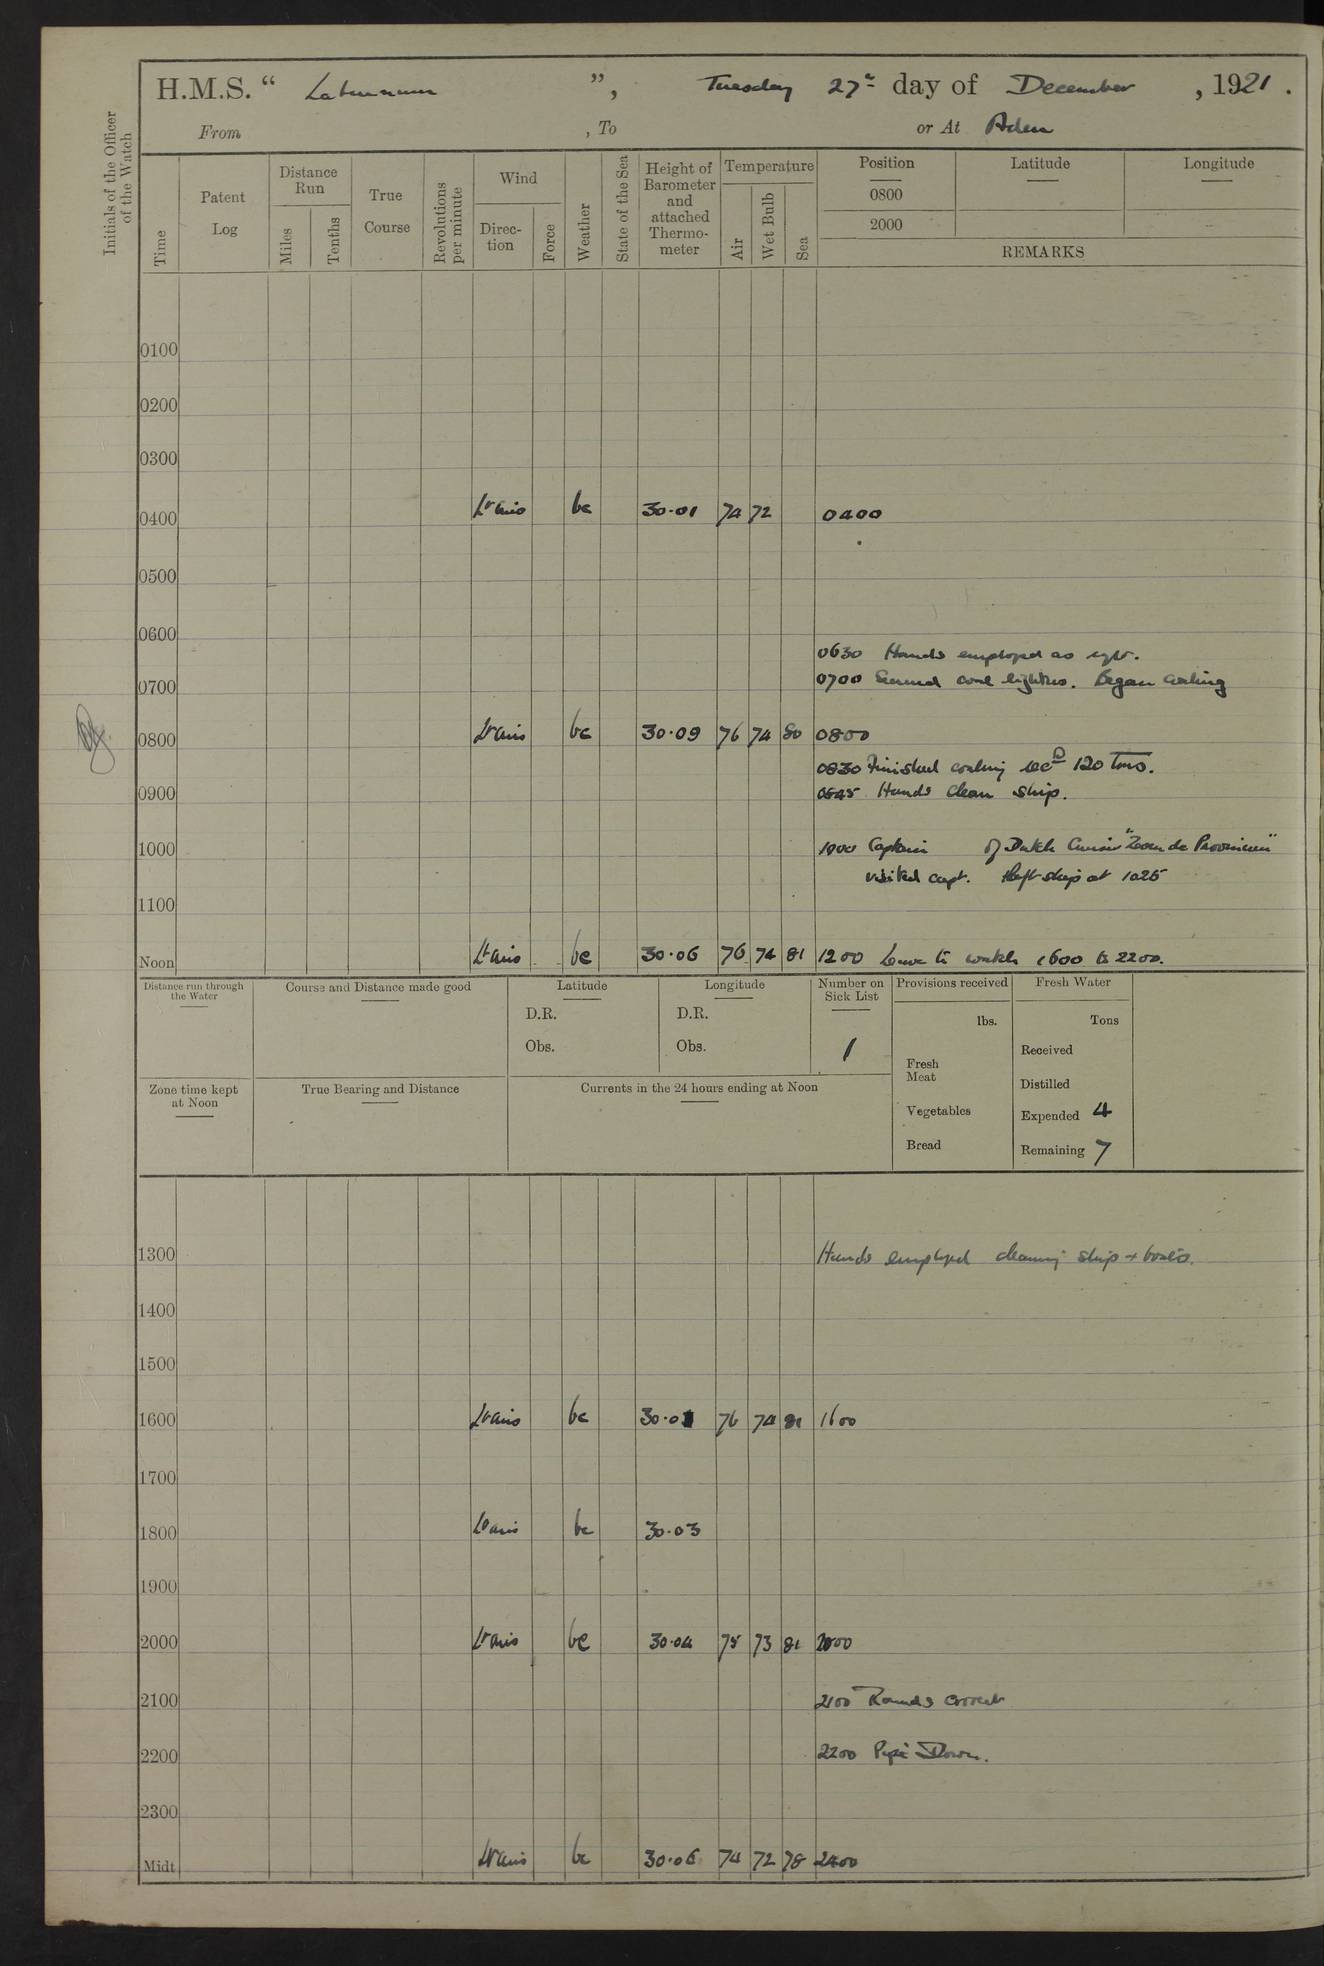 H.M.S. “ Laburnum ”, Tuesday 27th day of December , 1921 .
From , To or At Aden
Initials of the Officer of the Watch
Time
Patent Log
Distance Run
Miles
Tenths
True Course
Revolutions per minute
Wind
Direction
Force
Weather
State of the Sea
Height of Barometer and attached Thermometer
Temperature
Air
Wet Bulb
Sea
Position Latitude Longitude
0800
2000
REMARKS
0100
0200
0300
0400 Lt airs bc 30.01 74 72 0400
0500
0600
0630 Hands employed as reqte.
0700 Secured coal lighters. Began coaling
0700
0800 Lt airs bc 30.09 76 74 80 0800
0830 Finished coaling recd 120 Tons.
0900 0845 Hands clean ship.
1000 1000 Captain of Dutch Cruiser "Zeven de Provincien"
visited capt. & left ship at 1025
1100
Noon Lt airs bc 30.06 76 74 81 1200 Leave to watch 1600 to 2200.
Distance run through the Water
Course and Distance made good
Latitude
D.R.
Obs.
Longitude
D.R.
Obs.
Number on Sick List
1
Provisions received
lbs.
Fresh Meat
Vegetables
Bread
Fresh Water
Tons
Received
Distilled
Expended 4
Remaining 7
Zone time kept at Noon
True Bearing and Distance
Currents in the 24 hours ending at Noon
1300 Hands employed cleaning ship + boats.
1400
1500
1600 Lt airs bc 30.01 76 74 81 1600
1700
1800 Lt airs bc 30.03
1900
2000 Lt airs bc 30.04 75 73 81 2000
2100 2100 Rounds correct
2200 2200 Pipe Down.
2300
Midt Lt airs bc 30.06 74 72 78 2400